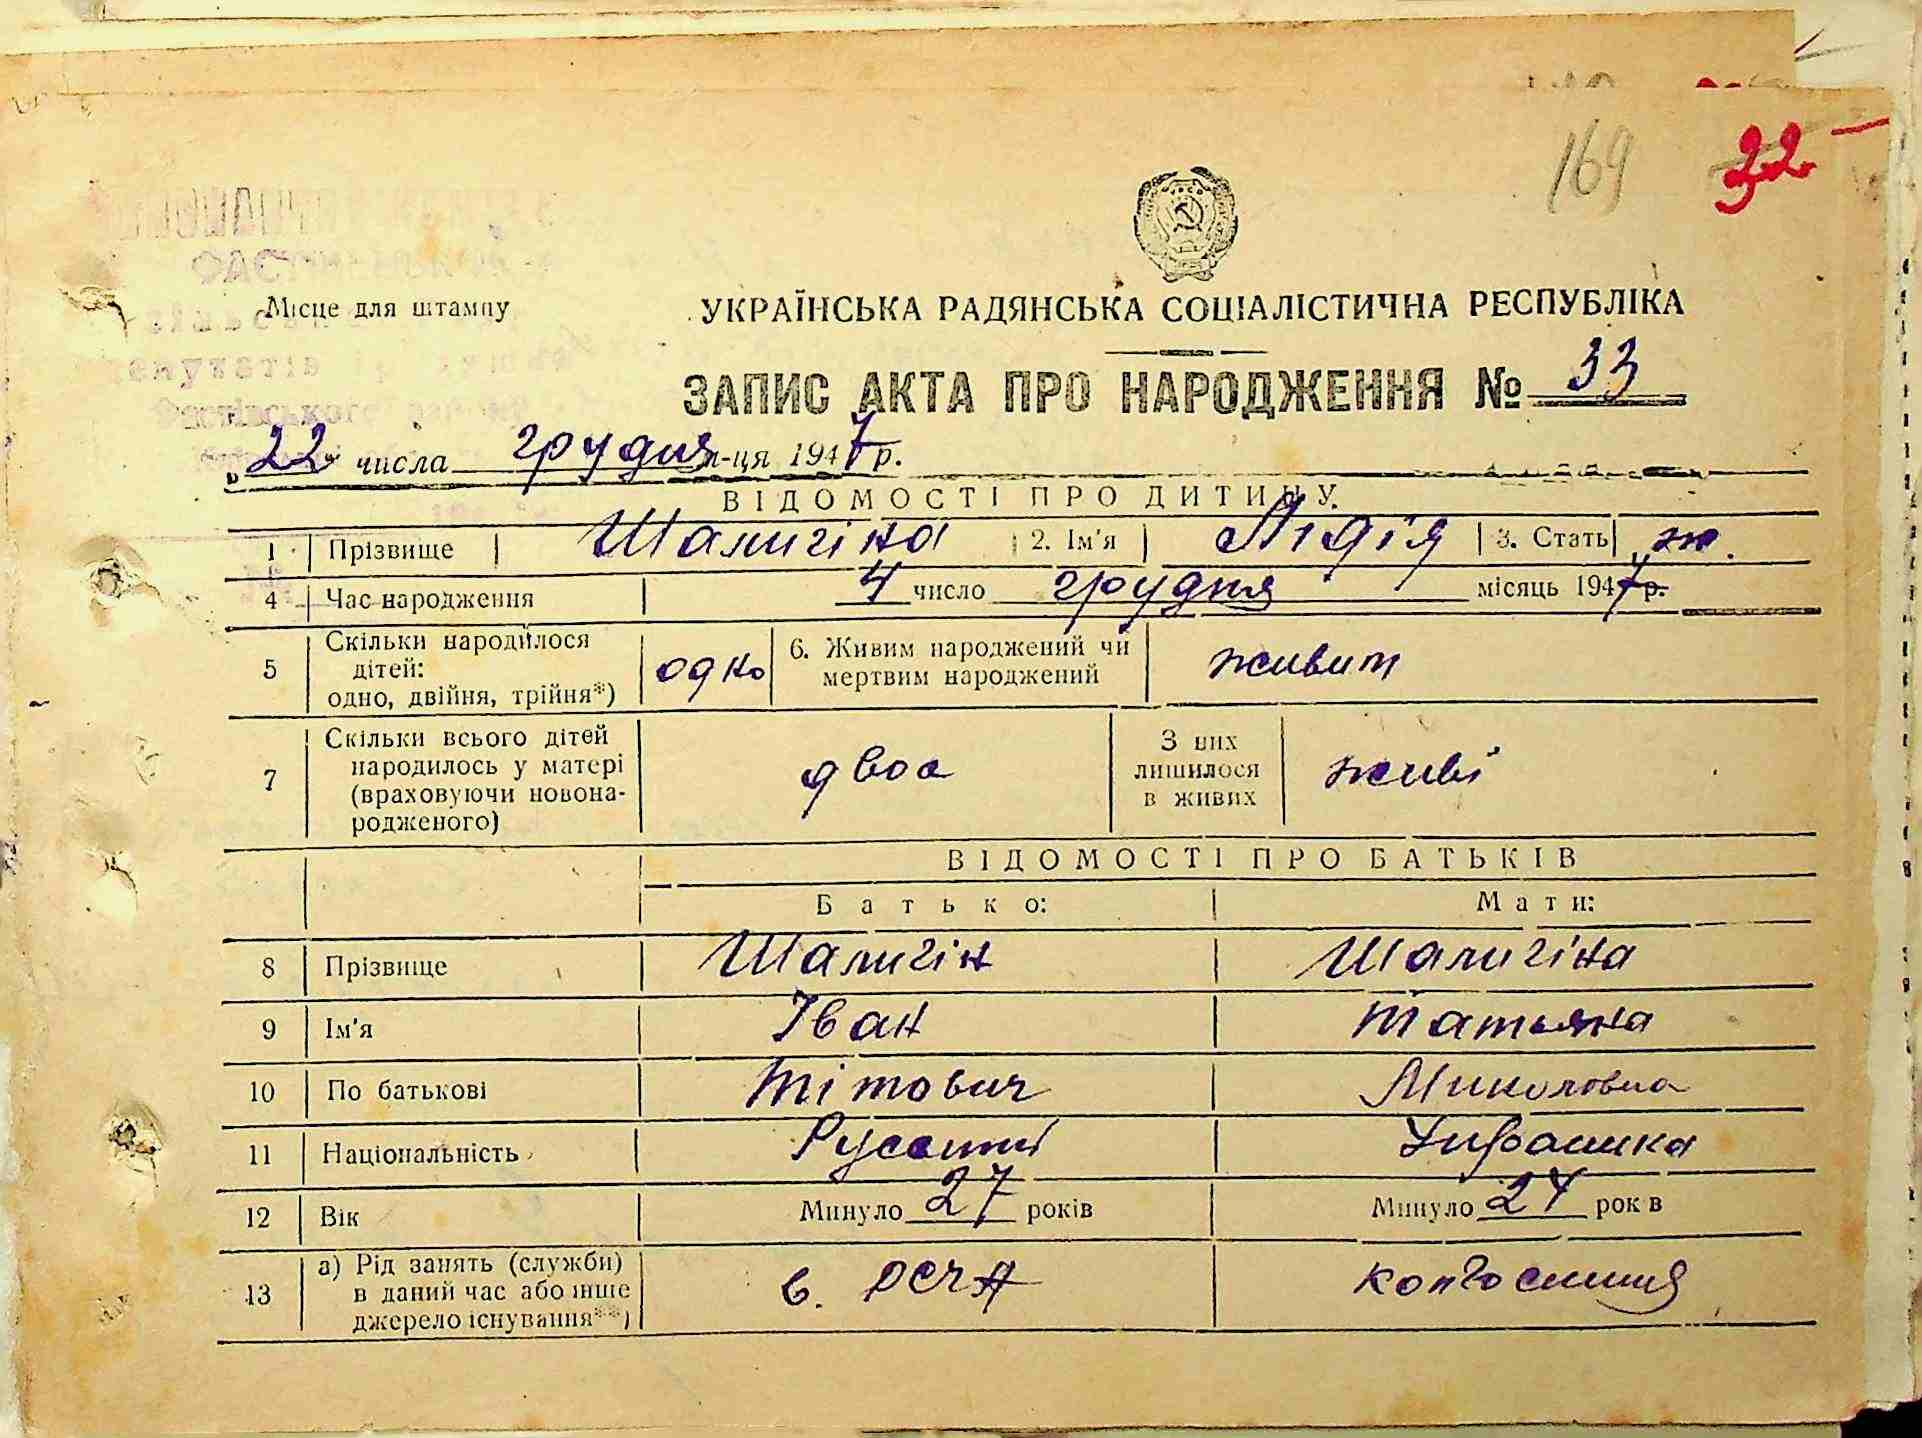 169 32
Місце для штампу
УКРАЇНСЬКА РАДЯНСЬКА СОЦІАЛІСТИЧНА РЕСПУБЛІКА
ЗАПИС АКТА ПРО НАРОДЖЕННЯ № 33
„22“ числа грудня м-ця 1947 р.
ВІДОМОСТІ ПРО ДИТИНУ
1 Прізвище Шалигіна 2. Ім'я Лідія 3. Стать ж.
4 Час народження 4 число грудня місяць 1947 р.
5 Скільки народилося дітей: одно, двійня, трійня*) одно 6. Живим народжений чи мертвим народжений живим
7 Скільки всього дітей народилось у матері (враховуючи новонародженого) двоє З них лишилося в живих живі
ВІДОМОСТІ ПРО БАТЬКІВ
Батько: Мати:
8 Прізвище Шалигін Шалигіна
9 Ім'я Іван Татьяна
10 По батькові Тітович Миколовна
11 Національність Українка
12 Вік Минуло 27 років Минуло 24 рок в
13 а) Рід занять (служби) в даний час або інше джерело існування**) в. РСЧА